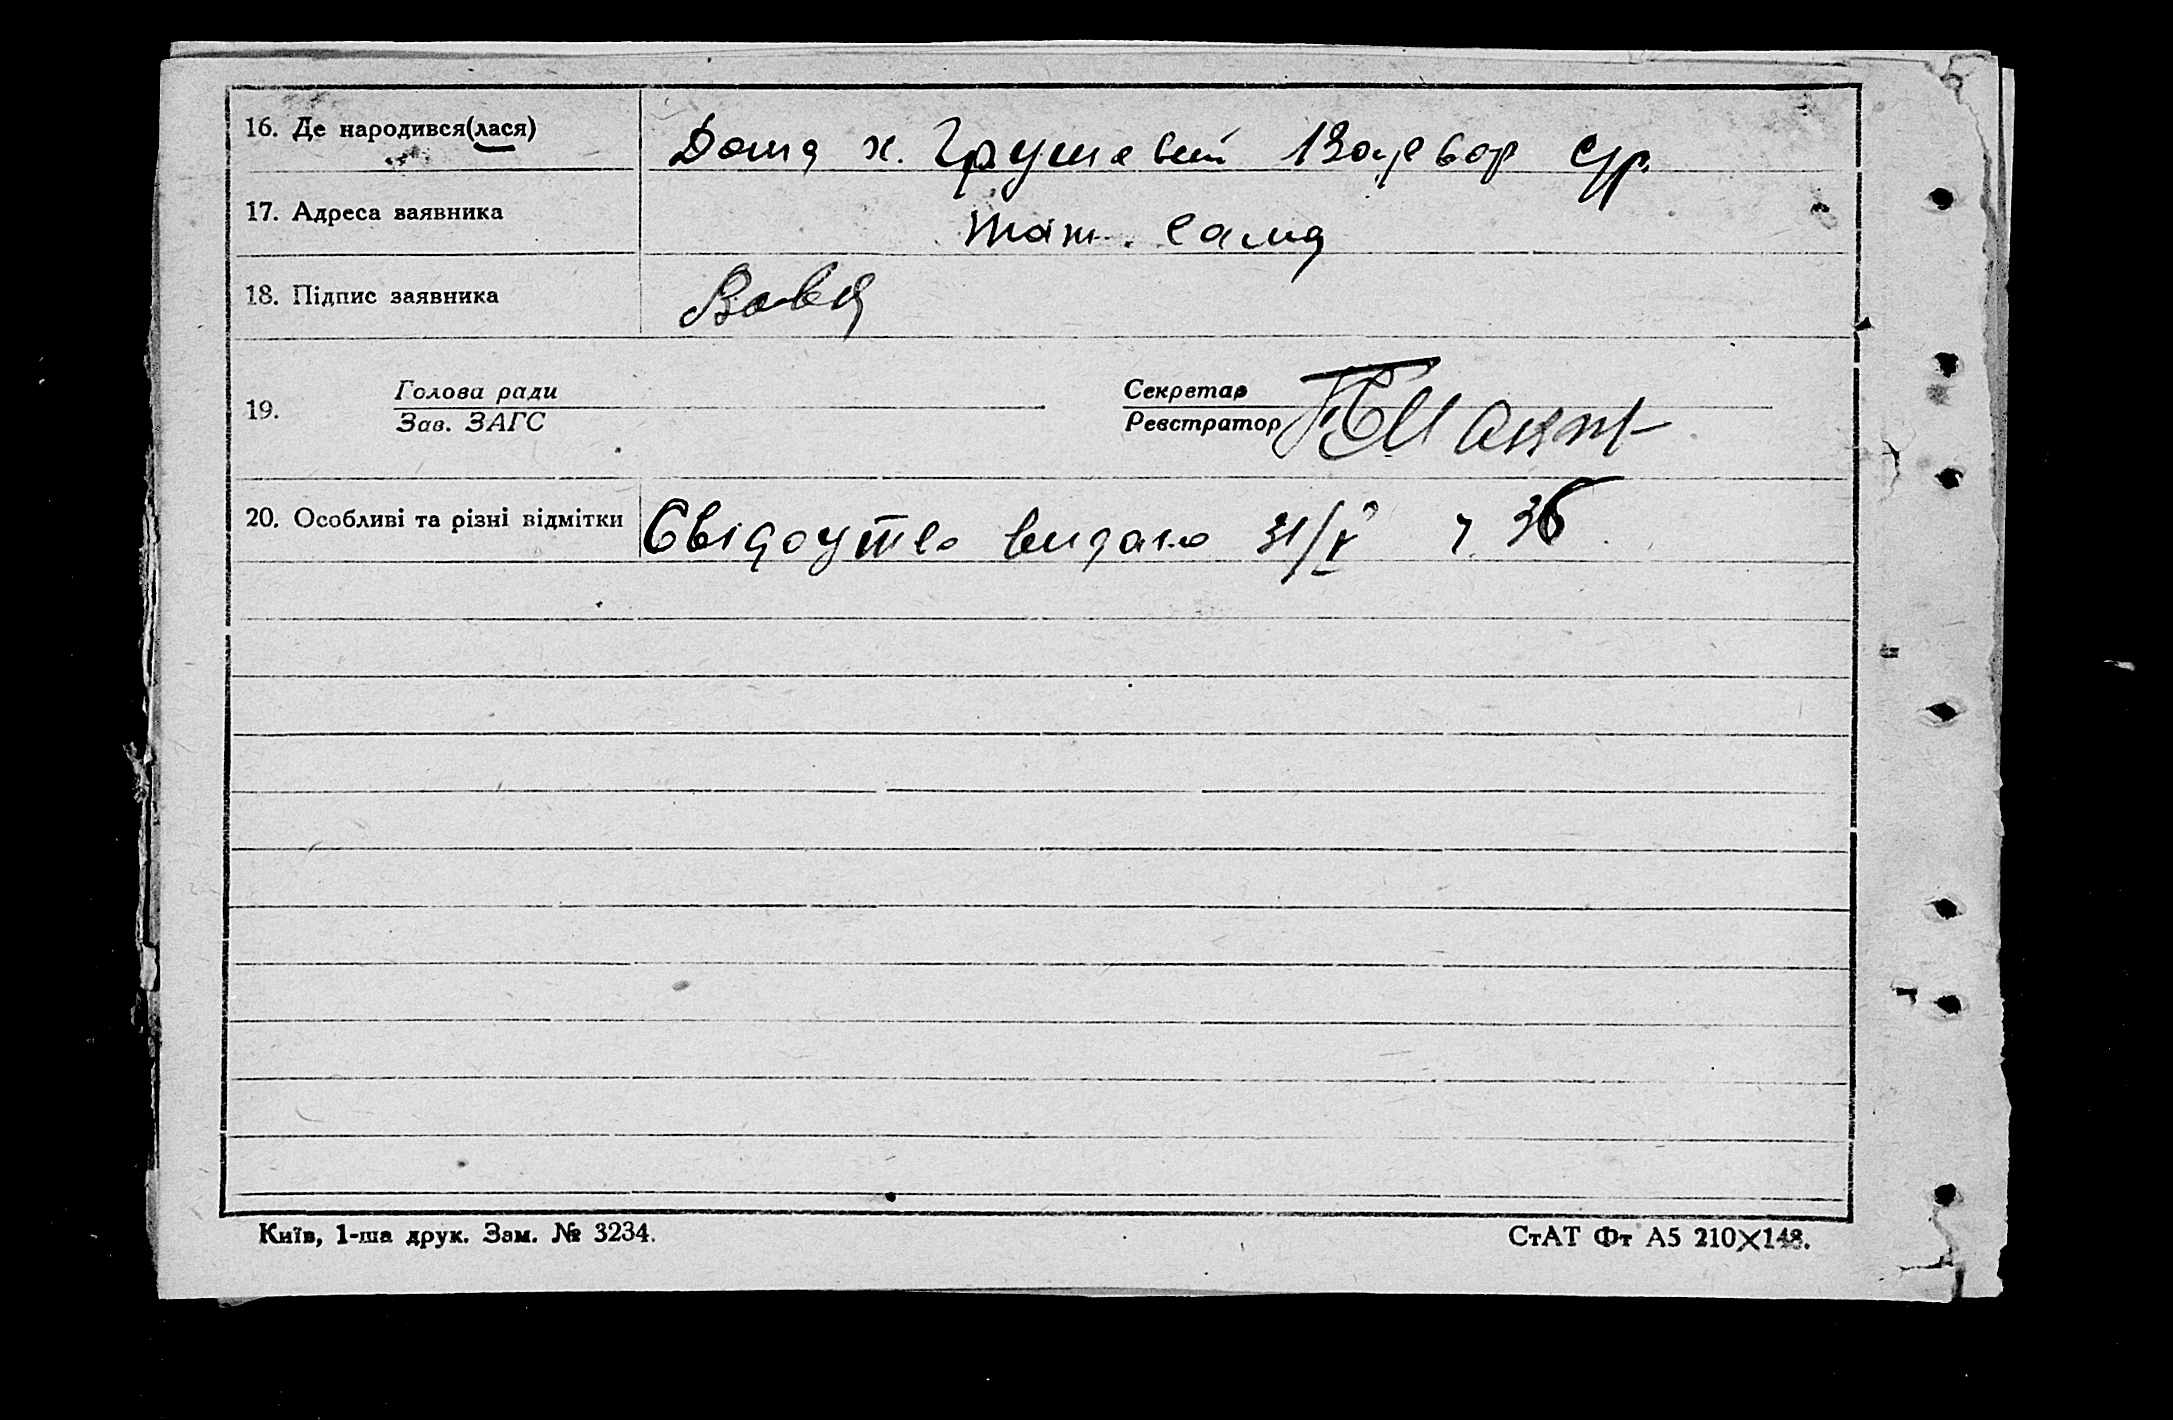 16. Де народився(лася) Дома х. Грушевий
17. Адреса заявника та ж. сама
18. Підпис заявника
Голова ради Секретар
19.
Зав. ЗАГС Реєстратор
20. Особливі та різні відмітки Свідоцтво видано 31/V 36
Київ, 1-ша друк. Зам. № 3234. СтАТ Фт А5 210×148.